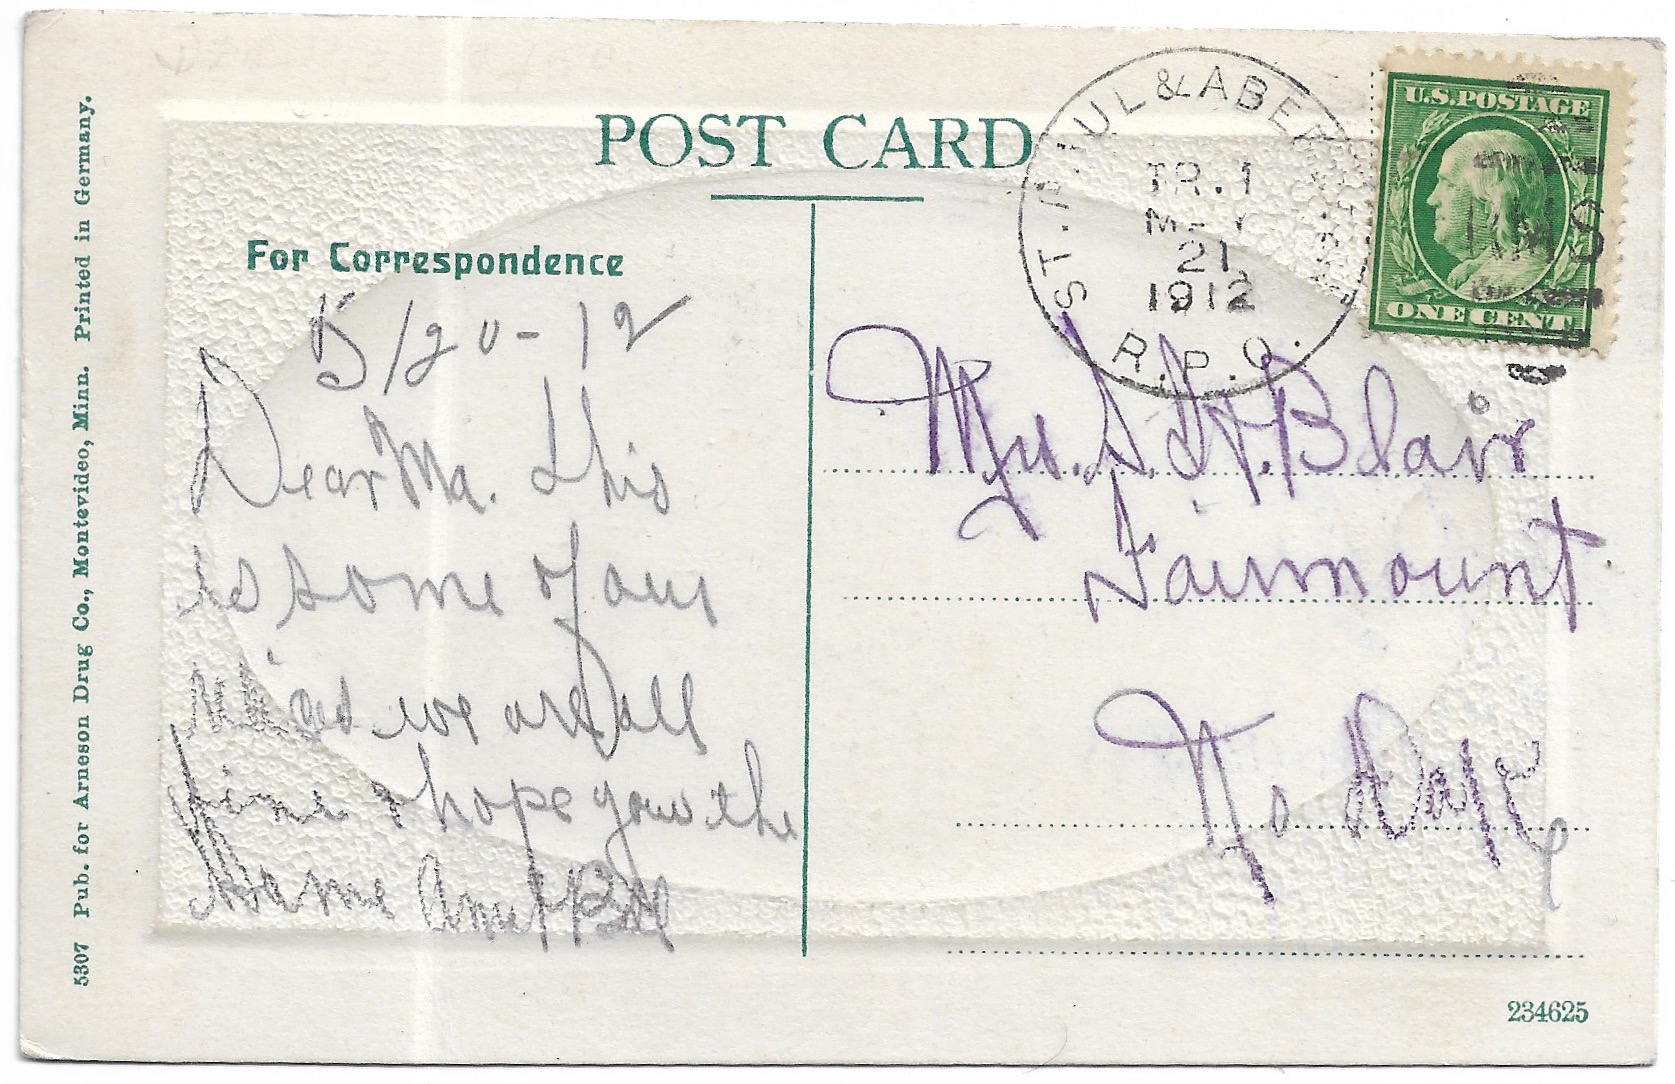 POST CARD
For Correspondence
5/20-12
Dear Ma. this
is some of our
we are all
fine & hope you the
same Bill
ST. PAUL & ABER
TR. 1
MAY
21
1912
R.P.O.
U.S. POSTAGE
ONE CENT
RMS
Mrs. S. W. Blair
Fairmount
No Dak
5307 Pub. for Arneson Drug Co., Montevideo, Minn. Printed in Germany.
234625